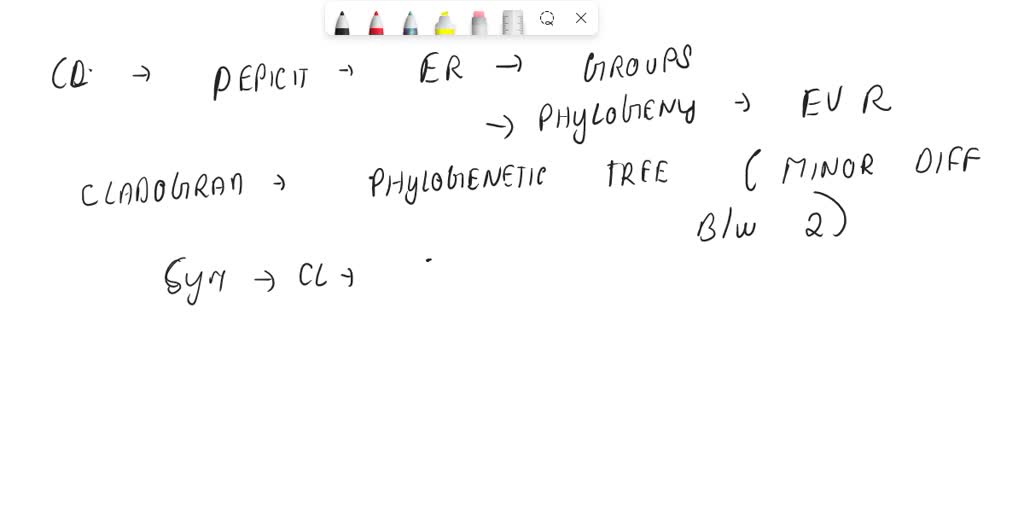 CD. → DEPICIT → ER → GROUPS
→ PHYLOGENY → EV R
CLADOGRAM → PHYLOGENETIC TREE ( MINOR DIFF
B/W 2)
Sym → CL →